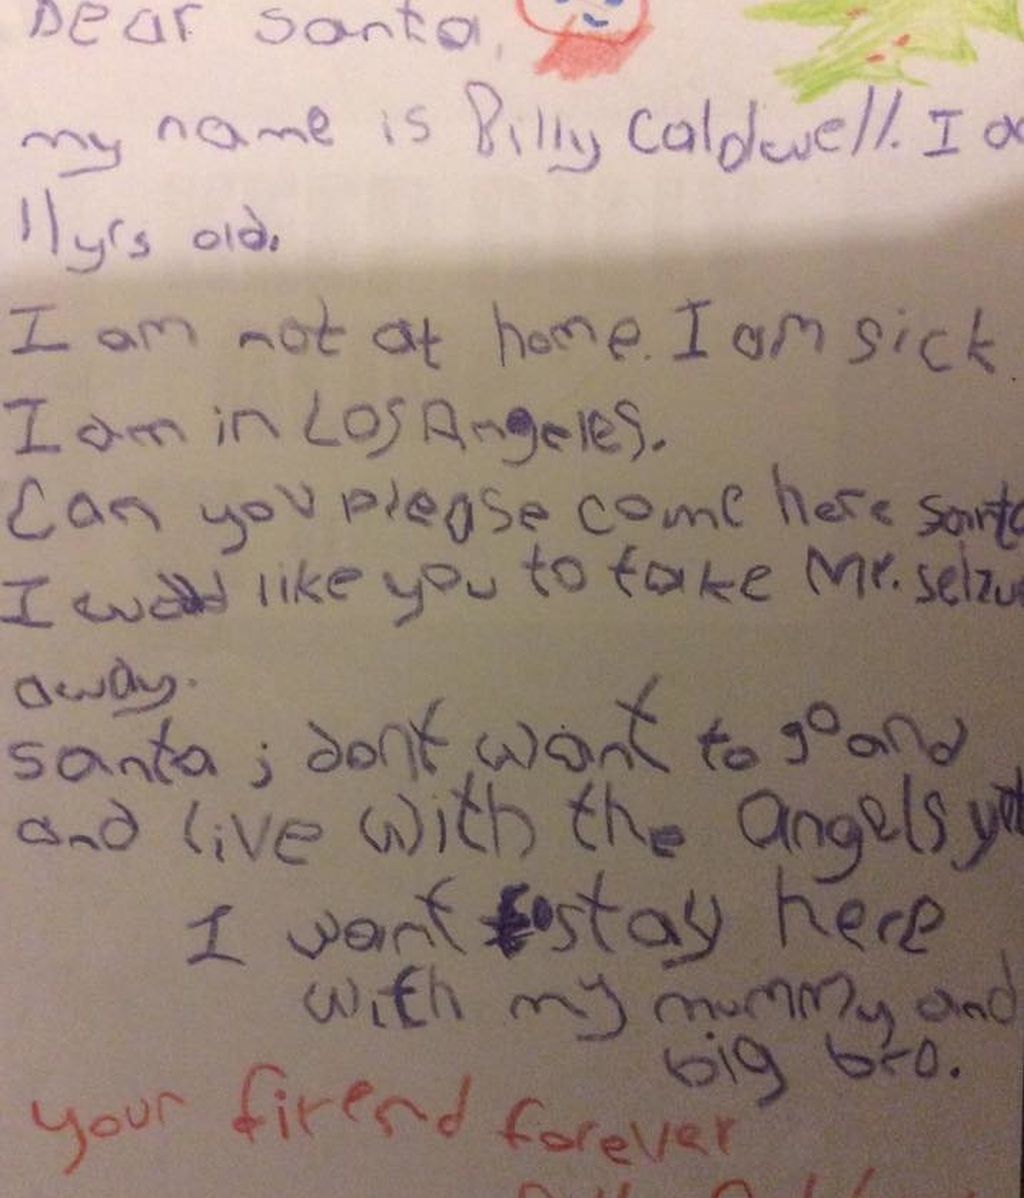 Dear Santa,
my name is Billy Caldwell. I
11 yrs old.
I am not at home. I am sick.
I am in Los Angeles.
Can you please come here santa
I like you to take Mr. selzu
away.
santa ; dont want to go and
and live with the angels yet
I want to stay here
with my mummy and
big bro.
your firend forever